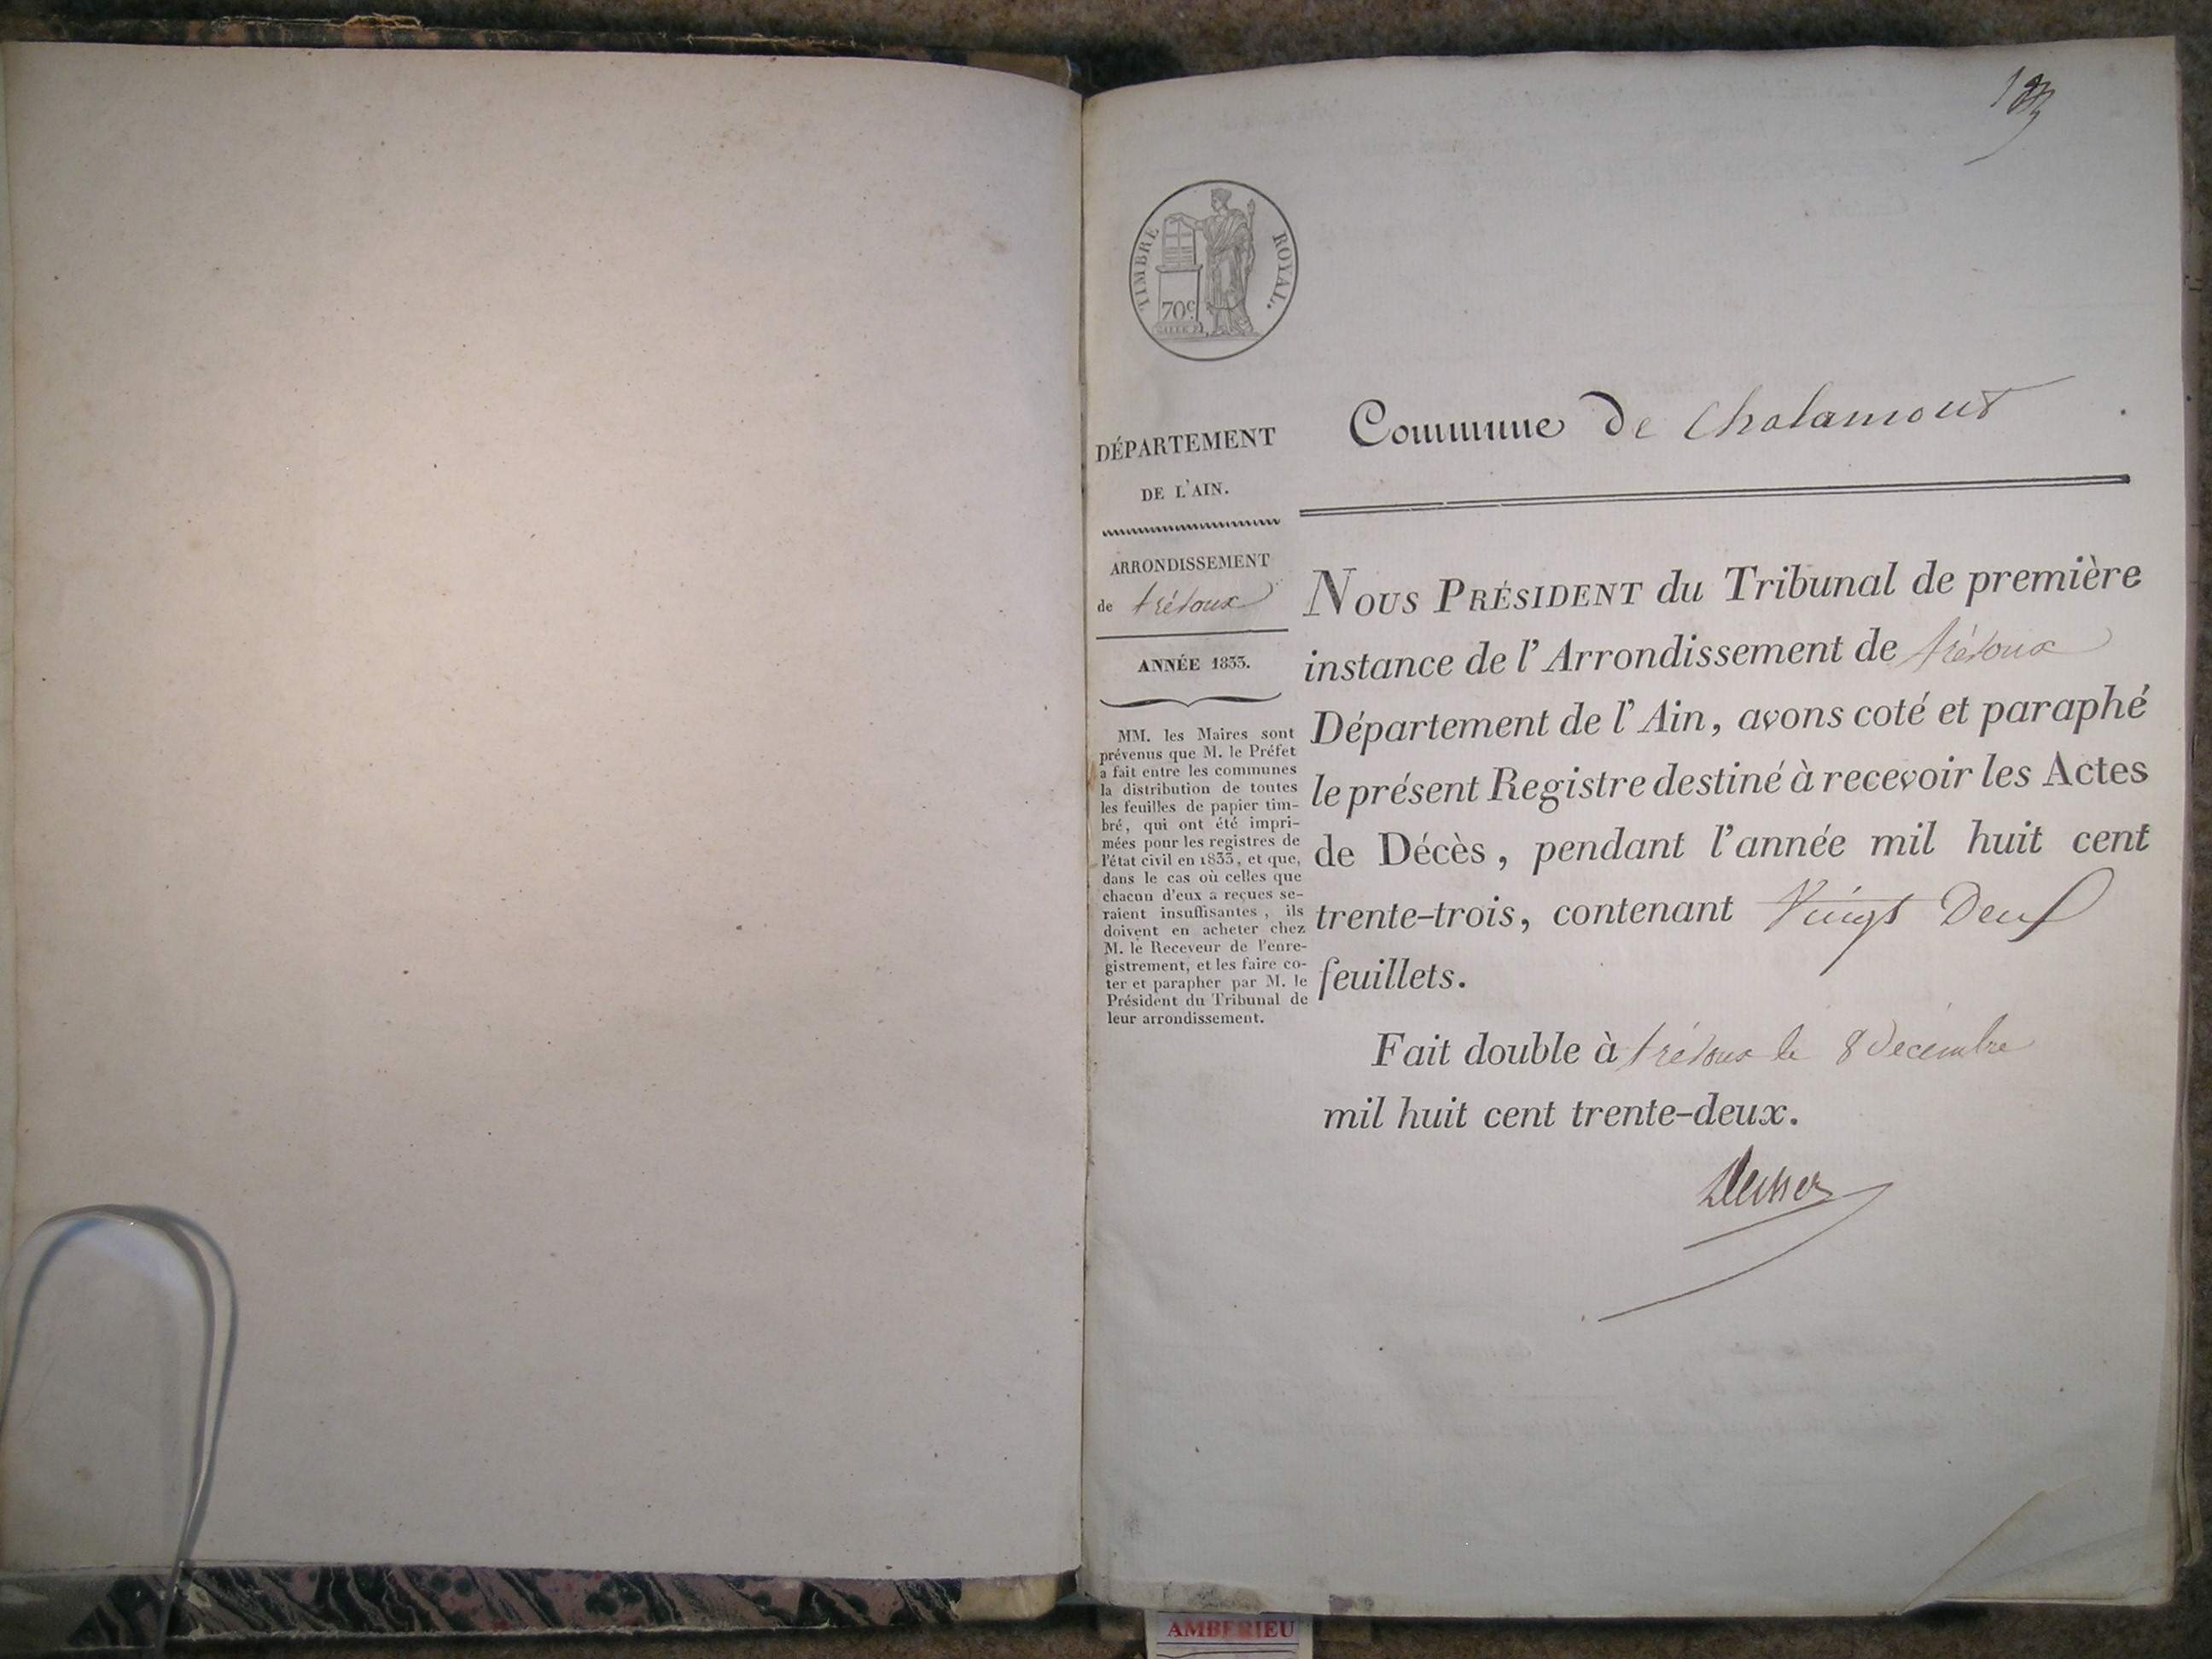 TIMBRE ROYAL.
70c
DÉPARTEMENT
DE L'AIN.
ARRONDISSEMENT
de trévoux
ANNÉE 1833.
MM. les Maires sont
prévenus que M. le Préfet
a fait entre les communes
la distribution de toutes
les feuilles de papier tim-
bré, qui ont été impri-
mées pour les registres de
l'état civil en 1833, et que,
dans le cas où celles que
chacun d'eux a reçues se-
raient insuffisantes, ils
doivent en acheter chez
M. le Receveur de l'enre-
gistrement, et les faire co-
ter et parapher par M. le
Président du Tribunal de
leur arrondissement.
Commune De Chalamont
NOUS PRÉSIDENT du Tribunal de première
instance de l'Arrondissement de trévoux
Département de l'Ain, avons coté et paraphé
le présent Registre destiné à recevoir les Actes
de Décès, pendant l'année mil huit cent
trente-trois, contenant Vingt Deux
feuillets.
Fait double à trévoux le 8 Decembre
mil huit cent trente-deux.
AMBERIEU